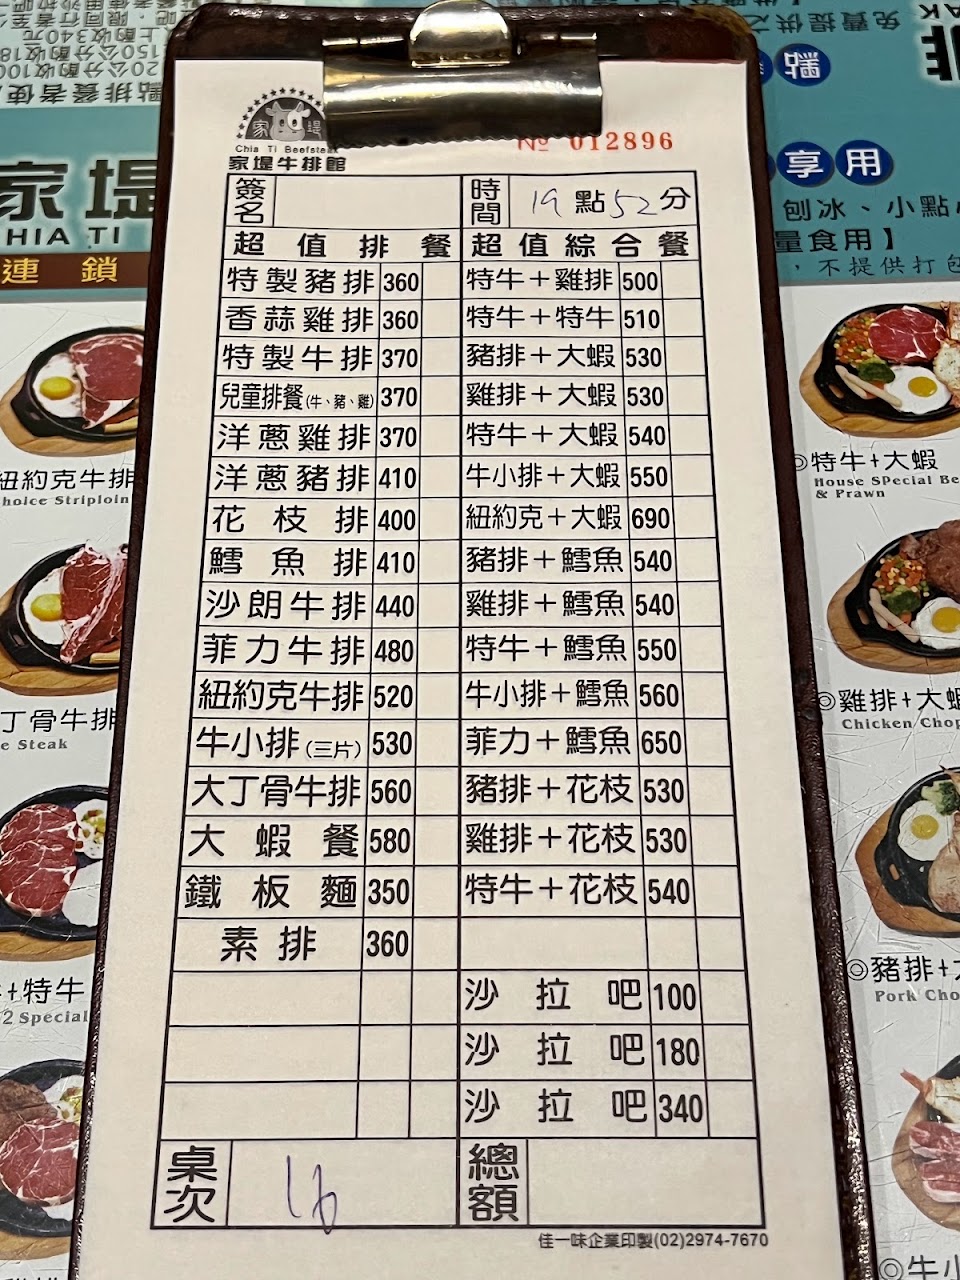 家堤
Chia Ti Beefsteak
家堤牛排館
№ 012896
簽名
時間 19點52分
超值排餐 超值綜合餐
特製豬排 360 特牛+雞排 500
香蒜雞排 360 特牛+特牛 510
特製牛排 370 豬排+大蝦 530
兒童排餐(牛、豬、雞) 370 雞排+大蝦 530
洋蔥雞排 370 特牛+大蝦 540
洋蔥豬排 410 牛小排+大蝦 550
花枝排 400 紐約克+大蝦 690
鱈魚排 410 豬排+鱈魚 540
沙朗牛排 440 雞排+鱈魚 540
菲力牛排 480 特牛+鱈魚 550
紐約克牛排 520 牛小排+鱈魚 560
牛小排(三片) 530 菲力+鱈魚 650
大丁骨牛排 560 豬排+花枝 530
大蝦餐 580 雞排+花枝 530
鐵板麵 350 特牛+花枝 540
素排 360
沙拉吧 100
沙拉吧 180
沙拉吧 340
桌次 16 總額
佳一味企業印製(02)2974-7670
家堤
CHIA TI
連鎖
紐約克牛排
hoice Striploin
丁骨牛排
e Steak
+特牛
2 Special
免費提供之
排
享用
刨冰、小點
量食用】
，不提供打包
◎特牛+大蝦
House SPecial Be
& Prawn
◎雞排+大蝦
Chicken Chop
◎豬排+大
Pork Cho
◎牛小